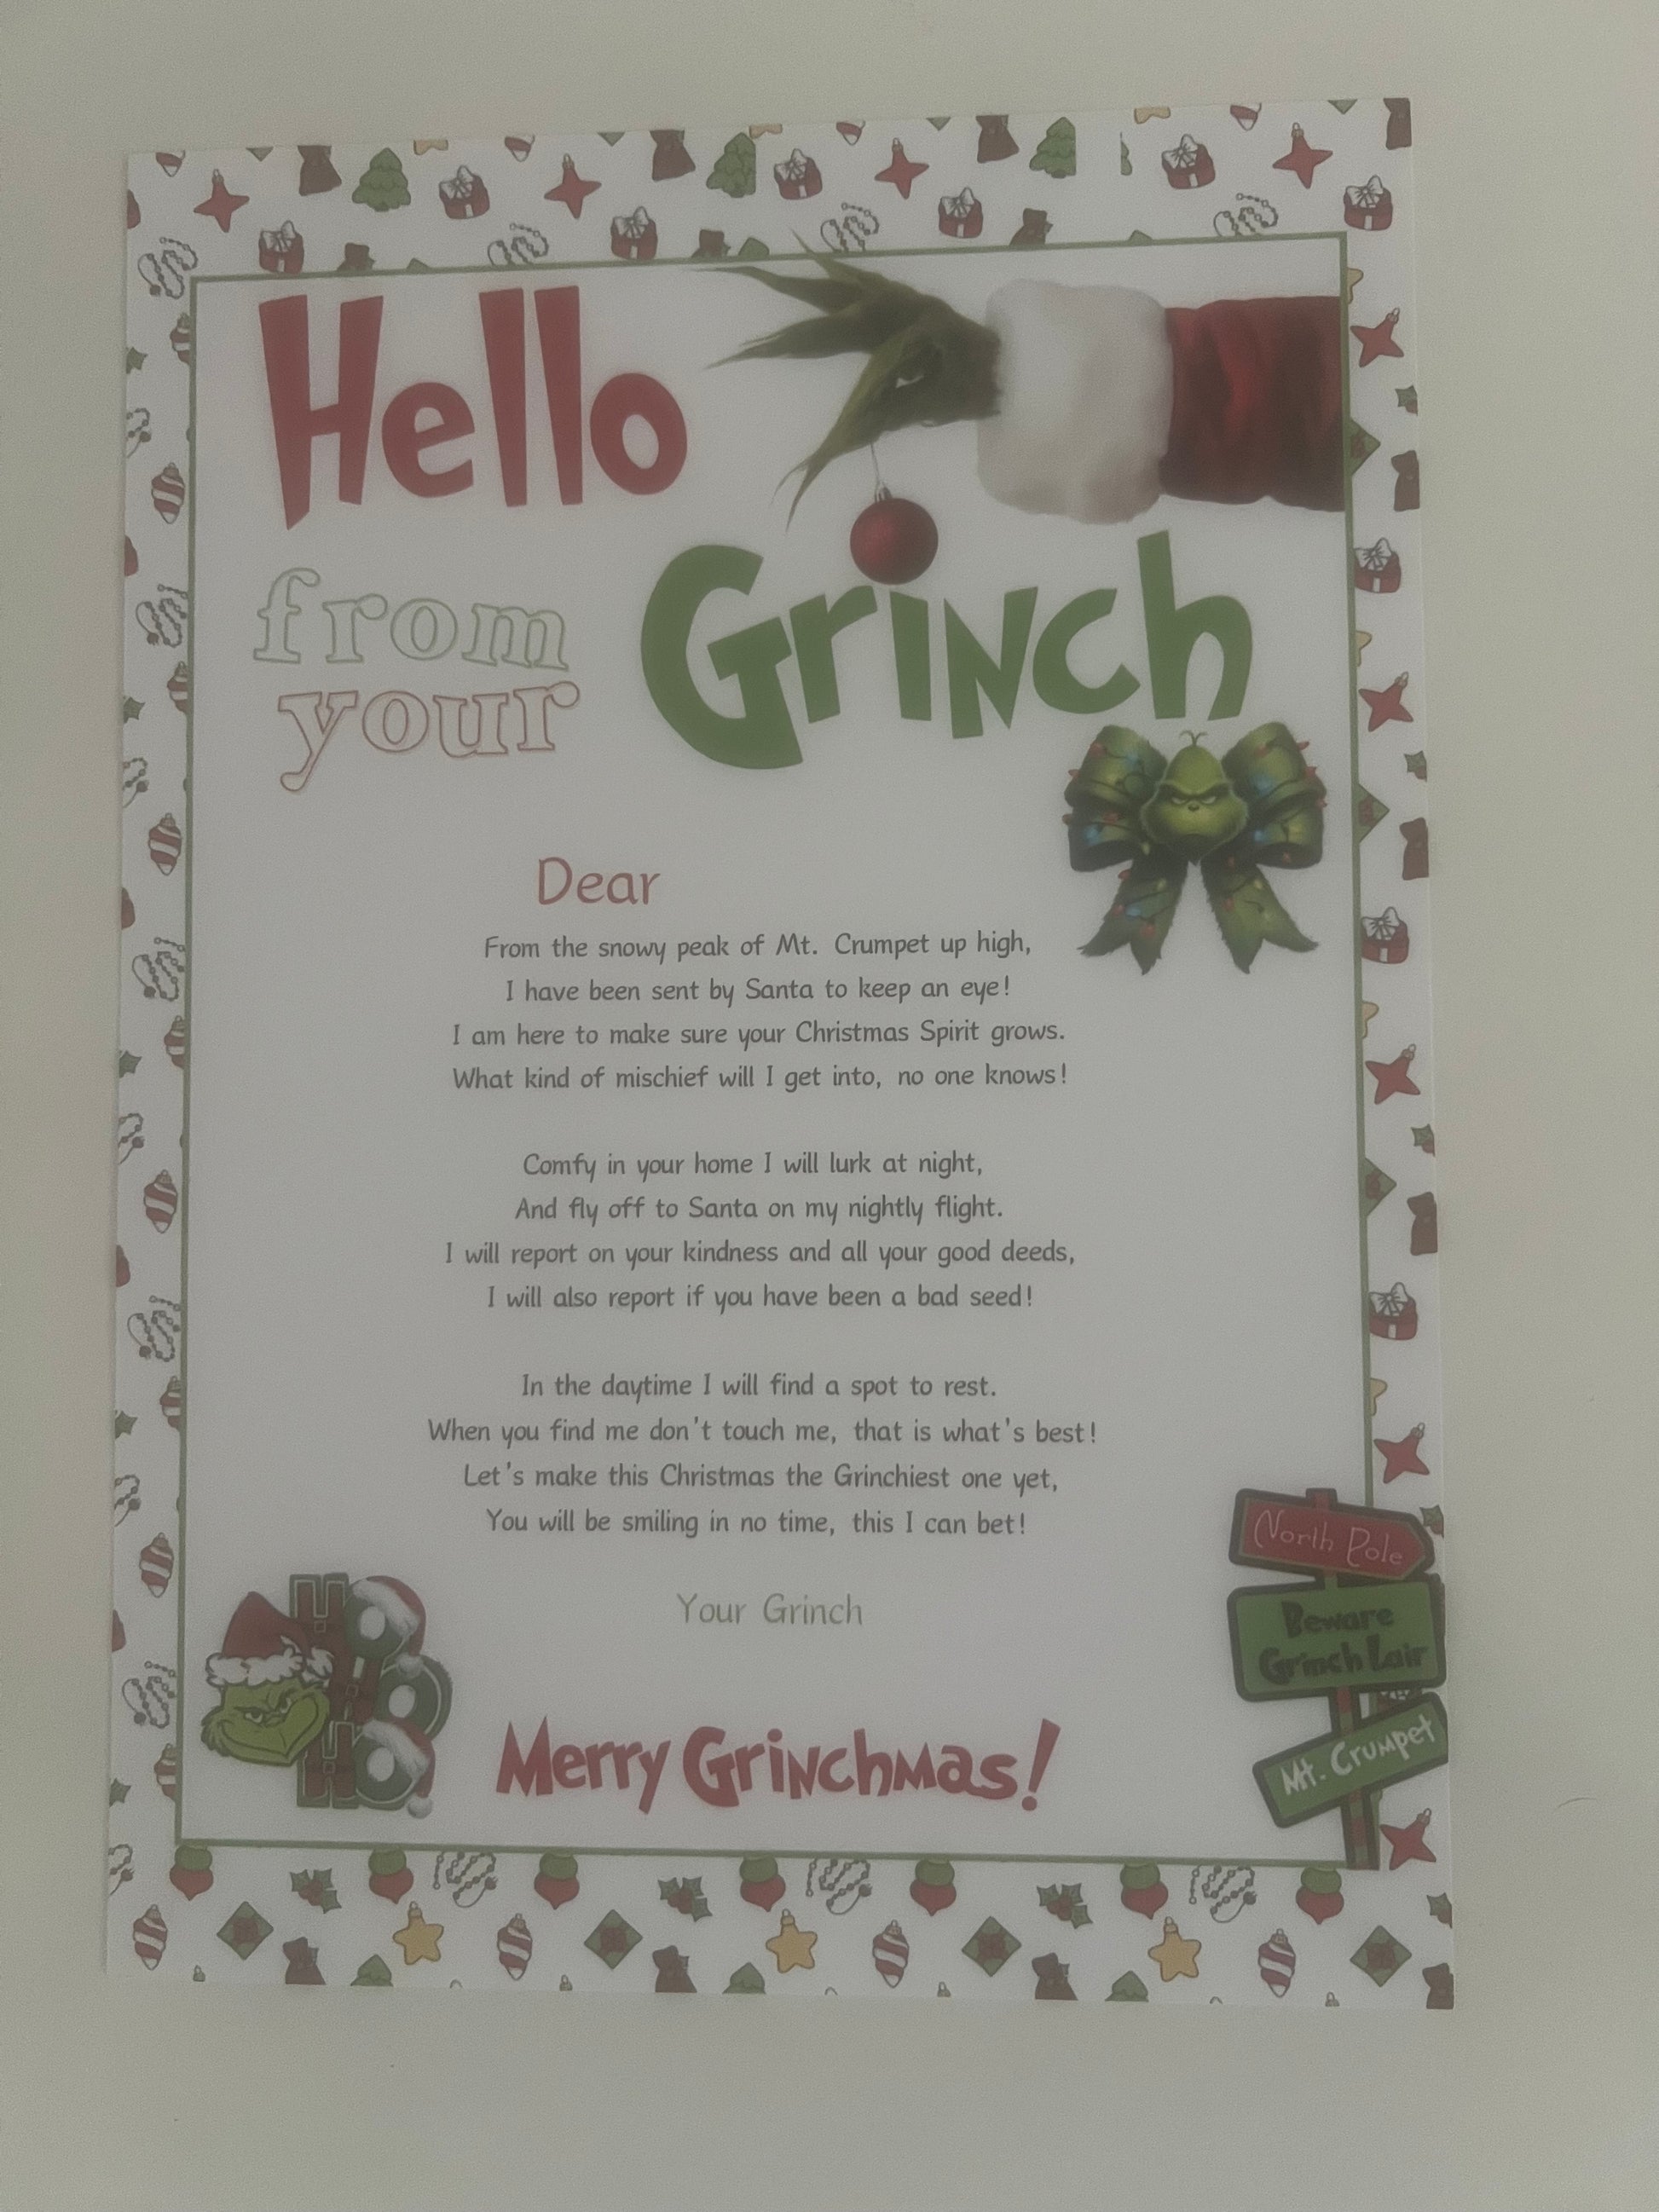 Hello
from
your
Grinch
Dear
From the snowy peak of Mt. Crumpet up high,
I have been sent by Santa to keep an eye!
I am here to make sure your Christmas Spirit grows.
What kind of mischief will I get into, no one knows!
Comfy in your home I will lurk at night,
And fly off to Santa on my nightly flight.
I will report on your kindness and all your good deeds,
I will also report if you have been a bad seed!
In the daytime I will find a spot to rest.
When you find me don't touch me, that is what's best!
Let's make this Christmas the Grinchiest one yet,
You will be smiling in no time, this I can bet!
Your Grinch
HO
HO
HO
Merry Grinchmas!
North Pole
Beware
Grinch Lair
Mt. Crumpet